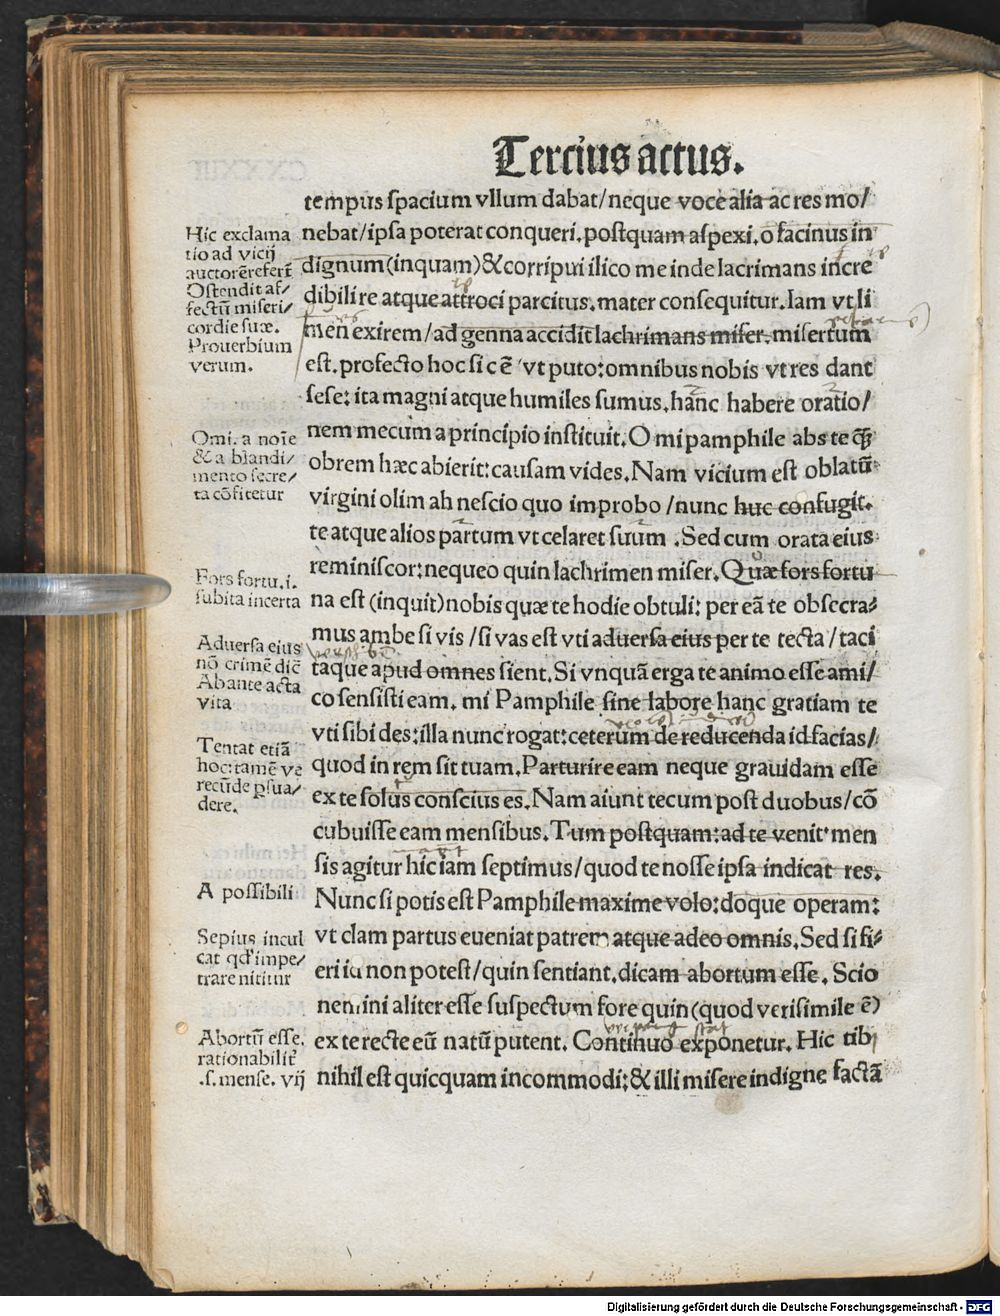 Tercius actus.
tempus spacium vllum dabat/neque voce alia ac res mo/
nebat/ipsa poterat conqueri. postquam aspexi. o facinus in
dignum (inquam) & corripui ilico me inde lacrimans incre
dibili re atque attroci parcitus. mater consequitur. Iam vt li
men exirem/ad genna accidit lachrimans miser. misertum
est. profecto hoc sic ē vt puto: omnibus nobis vt res dant
sese: ita magni atque humiles sumus. hanc habere oratio/
nem mecum a principio instituit. O mi pamphile abs te
obrem hæc abierit: causam vides. Nam vicium est oblatū
virgini olim ab nescio quo improbo /nunc huc confugit.
te atque alios partum vt celaret suum . Sed cum orata eius
reminiscor: nequeo quin lachrimen miser. Quæ fors fortu
na est (inquit) nobis quæ te hodie obtuli: per eā te obsecra/
mus ambe si vis /si vas est vti aduersa eius per te tecta/taci
taque apud omnes sient. Si vnquā erga te animo esse ami/
co sensisti eam. mi Pamphile sine labore hanc gratiam te
vti sibi des: illa nunc rogat: ceterum de reducenda id facias/
quod in rem sit tuam. Parturire eam neque grauidam esse
ex te solus conscius es. Nam aiunt tecum post duobus/cō
cubuisse eam mensibus. Tum postquam: ad te venit men
sis agitur hic iam septimus/quod te nosse ipsa indicat res.
Nunc si potis est Pamphile maxime volo: doque operam:
vt clam partus eueniat patrem atque adeo omnis. Sed si fi/
eri id non potest/quin sentiant. dicam abortum esse. Scio
nemini aliter esse suspectum fore quin (quod verisimile ē)
ex te recte eū natū putent. Continuo exponetur. Hic tibi
nihil est quicquam incommodi: & illi misere indigne factā
Hic exclama
tio ad vicij
auctorē refert̄
Ostendit af/
fectū miseri/
cordie suæ.
Prouerbium
verum.
Omi. a noīe
& a blandi/
mento secre/
ta cōfitetur
Fors fortu. i.
subita incerta
Aduersa eius
nō crimē dic̄
Abante acta
vita
Tentat etiā
hoc: tamē ve
recūde p̱sua/
dere.
A possibili
Sepius incul
cat qd' impe/
trare nititur
Abortū esse.
rationabilit̄
.s. mense. vij
Digitalisierung gefördert durch die Deutsche Forschungsgemeinschaft - DFG